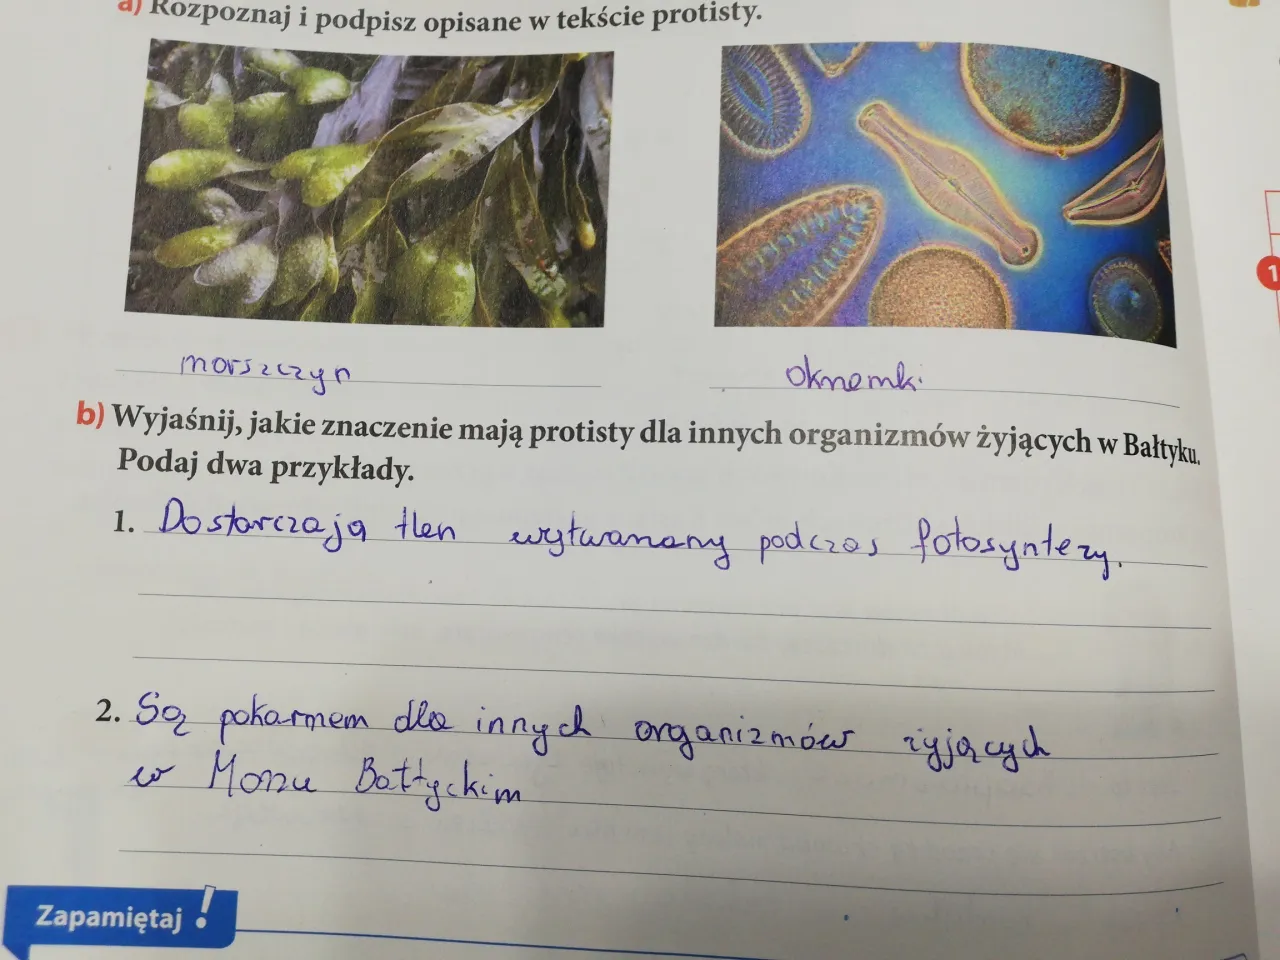 a) Rozpoznaj i podpisz opisane w tekście protisty.
morszczyn
oknemki
b) Wyjaśnij, jakie znaczenie mają protisty dla innych organizmów żyjących w Bałtyku.
Podaj dwa przykłady.
1. Dostarczają tlen wytwarzany podczas fotosyntezy.
2. Są pokarmem dla innych organizmów żyjących
w Morzu Bałtyckim
Zapamiętaj!
1